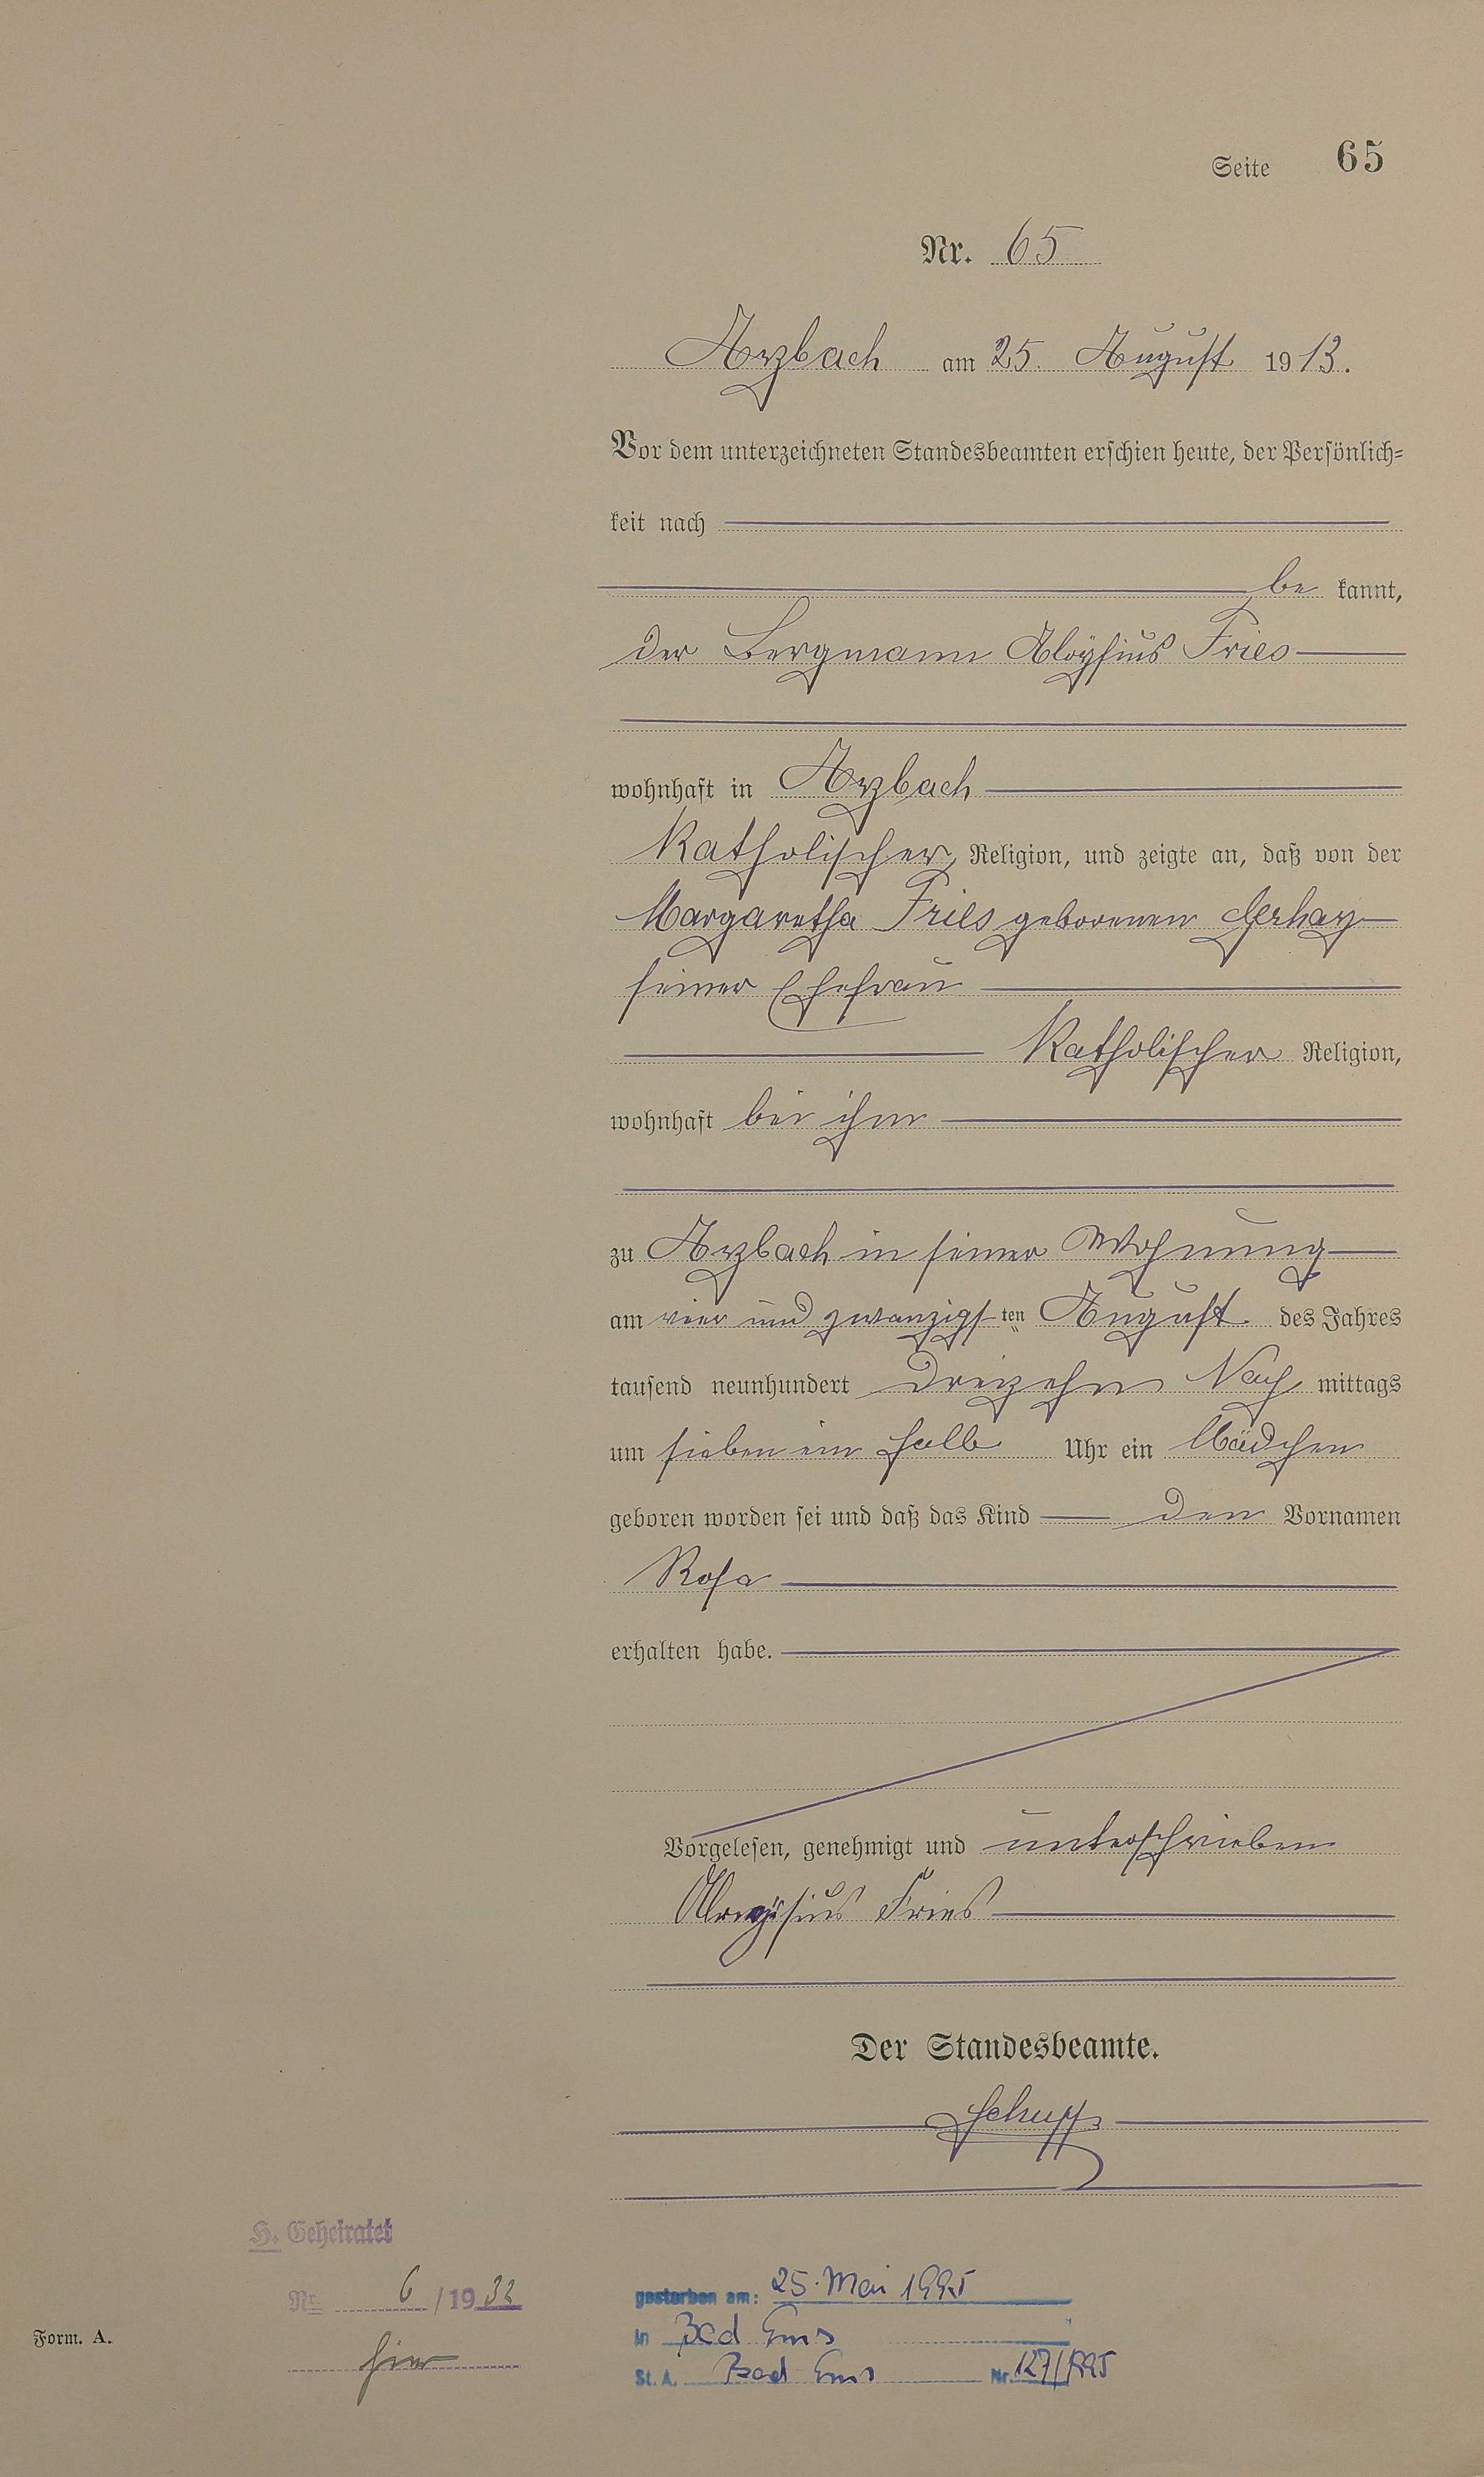 Seite 65
Nr. 65
Arzbach am 25. August 1913.
Vor dem unterzeichneten Standesbeamten erschien heute, der Persönlich=
keit nach
be kannt,
der Bergmann Aloysius Fries
wohnhaft in Arzbach
katholischer Religion, und zeigte an, daß von der
Margaretha Fries geborenen
seiner Ehefrau
katholischer Religion,
wohnhaft bei ihm
zu Arzbach in seiner Wohnung
am vier und zwanzigsten August des Jahres
tausend neunhundert dreizehn Nach mittags
um sieben ein halb Uhr ein Mädchen
geboren worden sei und daß das Kind den Vornamen
Rosa
erhalten habe.
Vorgelesen, genehmigt und unterschrieben
Aloysius Fries
Der Standesbeamte.
Schupp
H. Geheiratet
Nr. 6/1932
hier
Form. A.
gestorben am: 25. Mai 1995
in Bad Ems
St. A. Bad Ems Nr. 127/1995